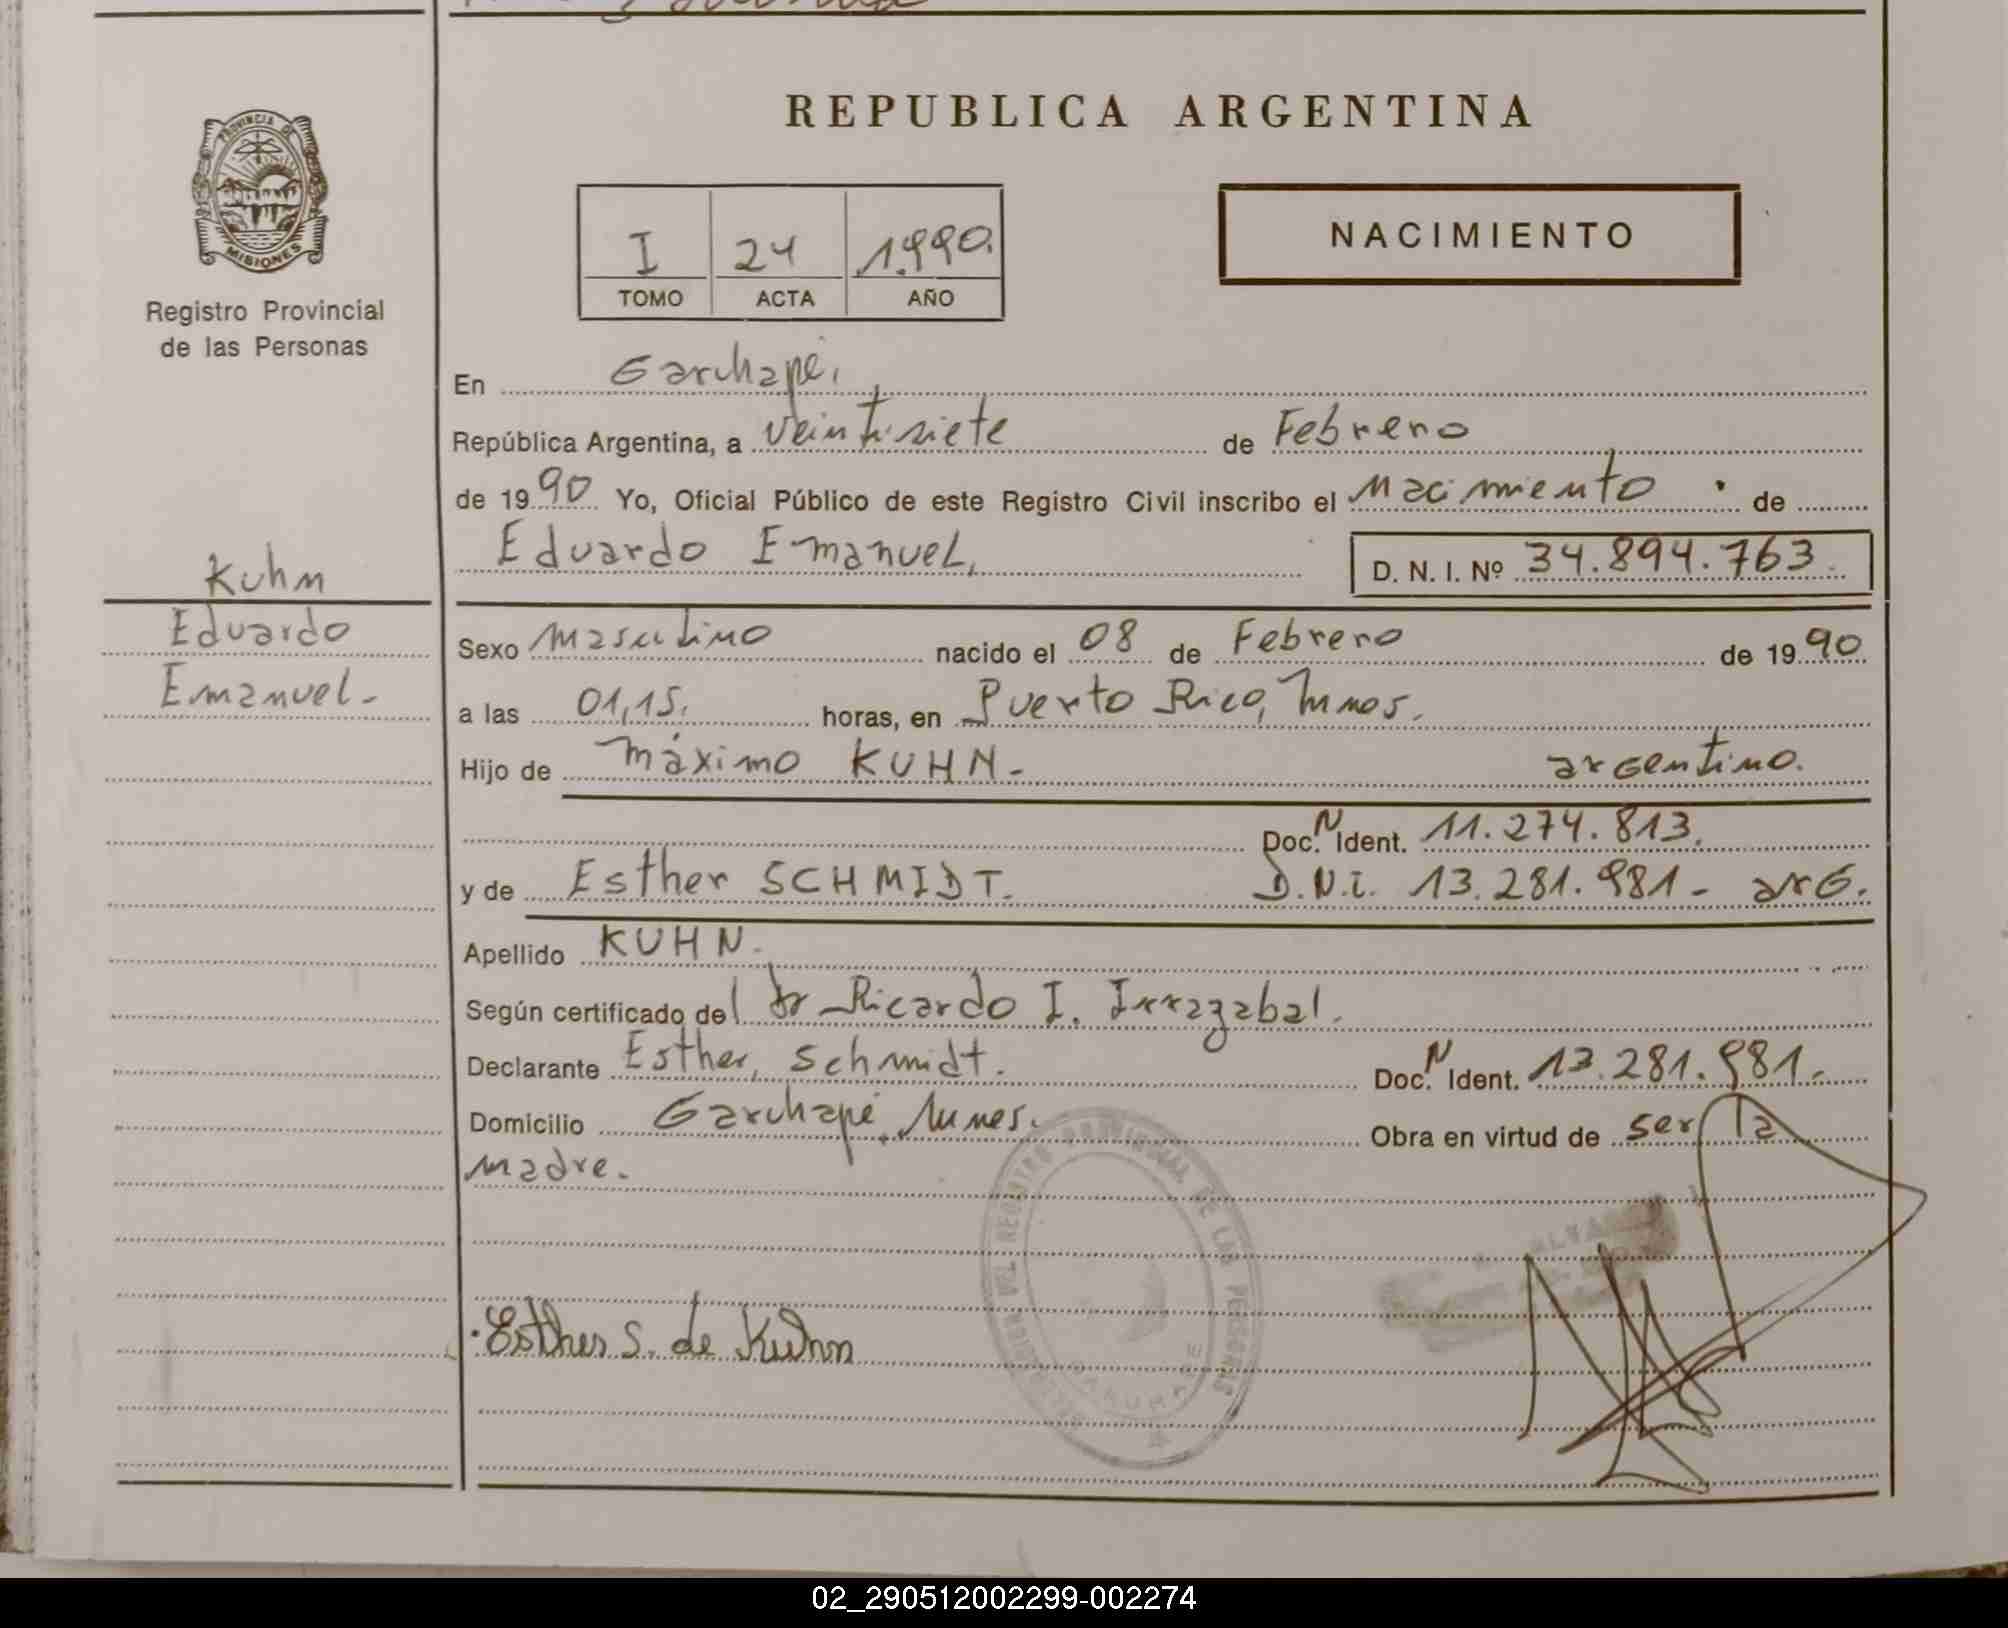 REPUBLICA ARGENTINA
PROVINCIA DE
MISIONES
Registro Provincial
de las Personas
NACIMIENTO
I 24 1.990.
TOMO ACTA AÑO
En Garuhapé,
República Argentina, a veintisiete de Febrero
de 1990 Yo, Oficial Público de este Registro Civil inscribo el Nacimiento de
Eduardo Emanuel, D. N. I. Nº 34.894.763.
Kuhn
Eduardo
Emanuel.-
Sexo masculino nacido el 08 de Febrero de 1990
a las 01,15. horas, en Puerto Rico, Mnes.
Hijo de Máximo KUHN.- argentino.
Doc. N Ident. 11.274.813.
y de Esther SCHMIDT. D.N.I. 13.281.981- arG.
Apellido KUHN.
Según certificado del dr Ricardo I. Irrazabal.
Declarante Esther, Schmidt. Doc. N Ident. 13.281.981.-
Domicilio Garuhapé, Mnes. Obra en virtud de ser la
madre.
REGISTRO PROVINCIAL DE LAS PERSONAS
GARUHAPE
Esther S. de Kuhn
02_290512002299-002274